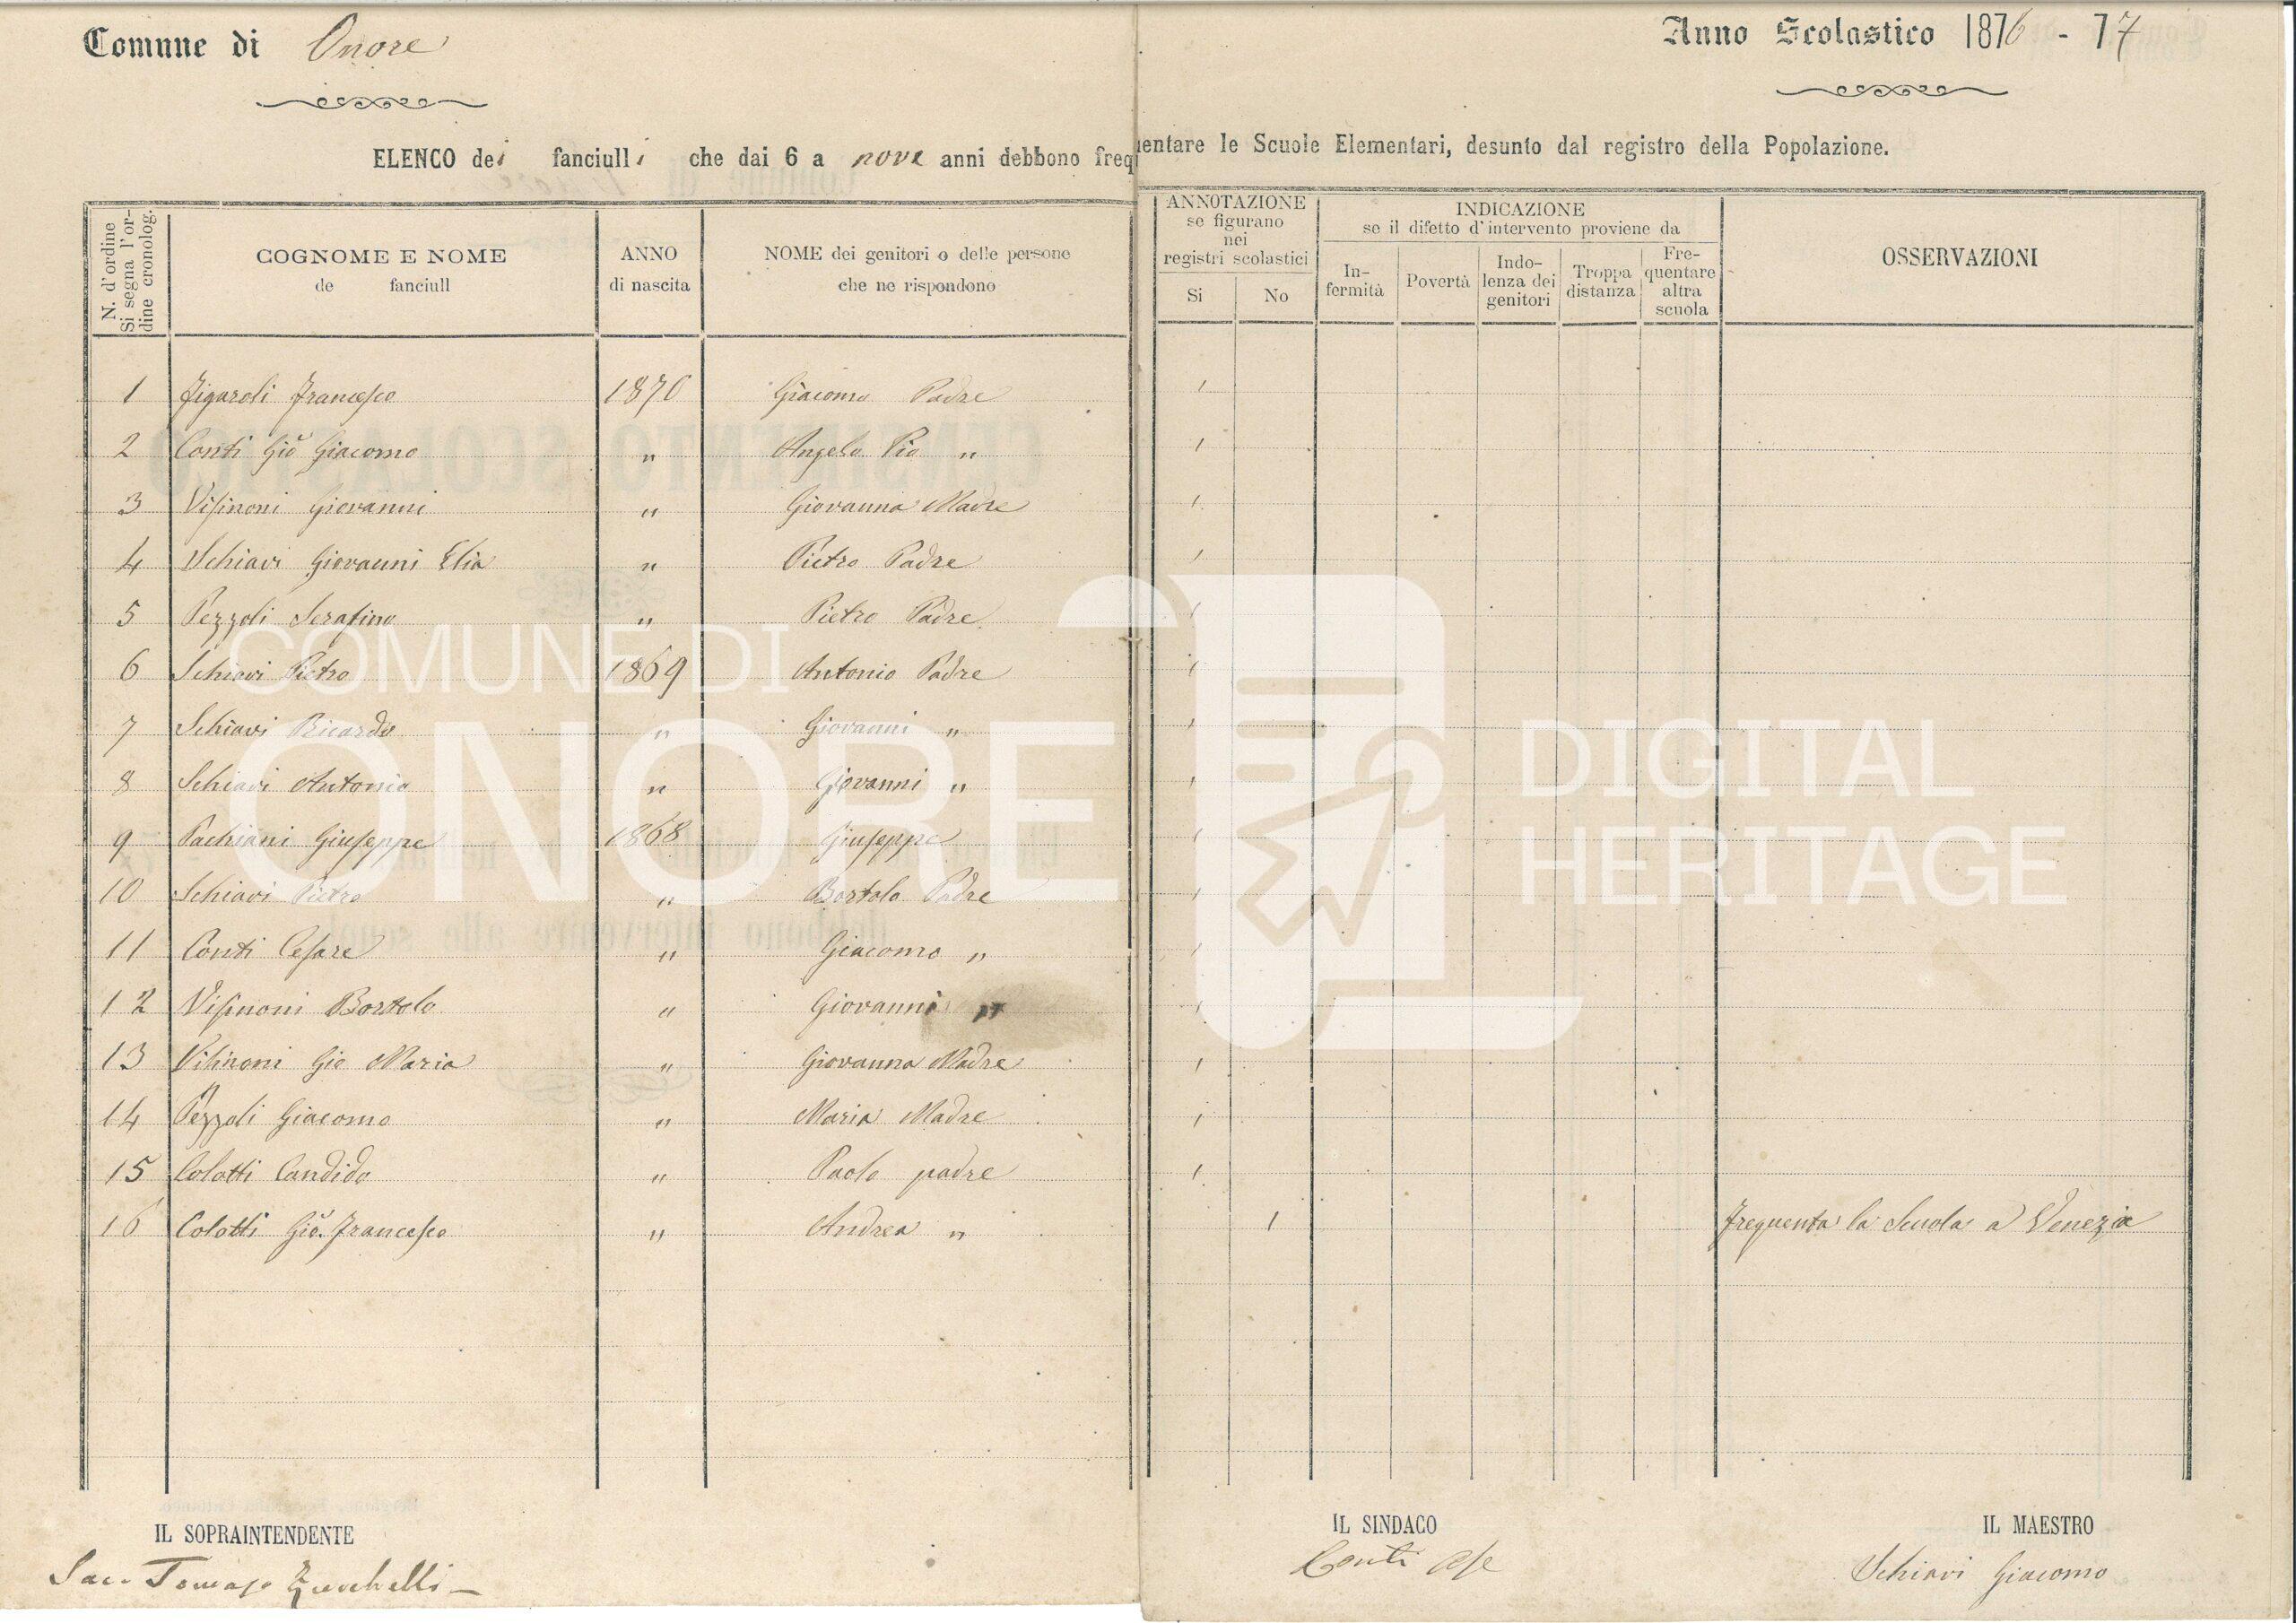 Comune di Onore
Anno Scolastico 1876 - 77
ELENCO dei fanciulli che dai 6 a nove anni debbono frequentare le Scuole Elementari, desunto dal registro della Popolazione.
N. d'ordine
Si segna l'or-
dine cronolog.
COGNOME E NOME
de fanciull
ANNO
di nascita
NOME dei genitori o delle persone
che ne rispondono
ANNOTAZIONE
se figurano
nei
registri scolastici
Si No
INDICAZIONE
se il difetto d'intervento proviene da
In-
fermità
Povertà
Indo-
lenza dei
genitori
Troppa
distanza
Fre-
quentare
altra
scuola
OSSERVAZIONI
1 Figaroli Francesco 1870 Giacomo Padre 1
2 Conti Gio Giacomo " Angelo Pio " 1
3 Visinoni Giovanni " Giovanna Madre 1
4 Schiavi Giovanni Elia " Pietro Padre 1
5 Pezzoli Serafino " Pietro Padre 1
6 Schiavi Pietro 1869 Antonio Padre 1
7 Schiavi Ricardo " Giovanni " 1
8 Schiavi Antonio " Giovanni " 1
9 Pachiani Giuseppe 1868 Giuseppe 1
10 Schiavi Pietro " Bortolo Padre 1
11 Conti Cesare " Giacomo " 1
12 Visinoni Bortolo " Giovanni " 1
13 Visinoni Gio Maria " Giovanna Madre 1
14 Pezzoli Giacomo " Maria Madre 1
15 Colotti Candido " Paolo padre 1
16 Colotti Gio. Francesco " Andrea " 1 frequenta la Scuola a Venezia
COMUNE DI
ONORE
DIGITAL
HERITAGE
IL SOPRAINTENDENTE
Sac. Tomaso Zucchelli
IL SINDACO
Conti
IL MAESTRO
Schiavi Giacomo